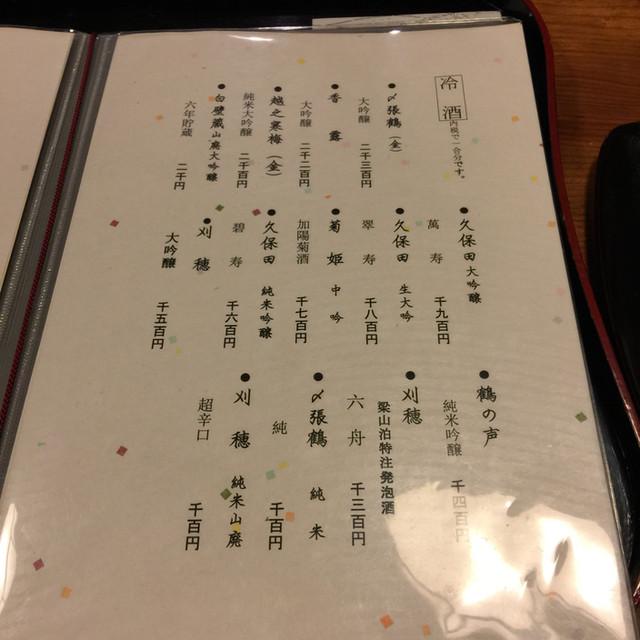 冷酒
内税で一合分です。
●〆張鶴（金）
大吟醸 二千三百円
●香露
大吟醸 二千二百円
●越之寒梅（金）
純米大吟醸 二千百円
●白壁蔵 山廃大吟醸
六年貯蔵 二千円
●久保田 大吟醸
萬寿 千九百円
●久保田 生大吟
翠寿 千八百円
●菊姫 中吟
加陽菊酒 千七百円
●久保田 純米吟醸
碧寿 千六百円
●刈穂
大吟醸 千五百円
●鶴の声
純米吟醸 千四百円
●刈穂 梁山泊特注発泡酒
六舟 千三百円
●〆張鶴 純米
純 千百円
●刈穂 純米山廃
超辛口 千百円